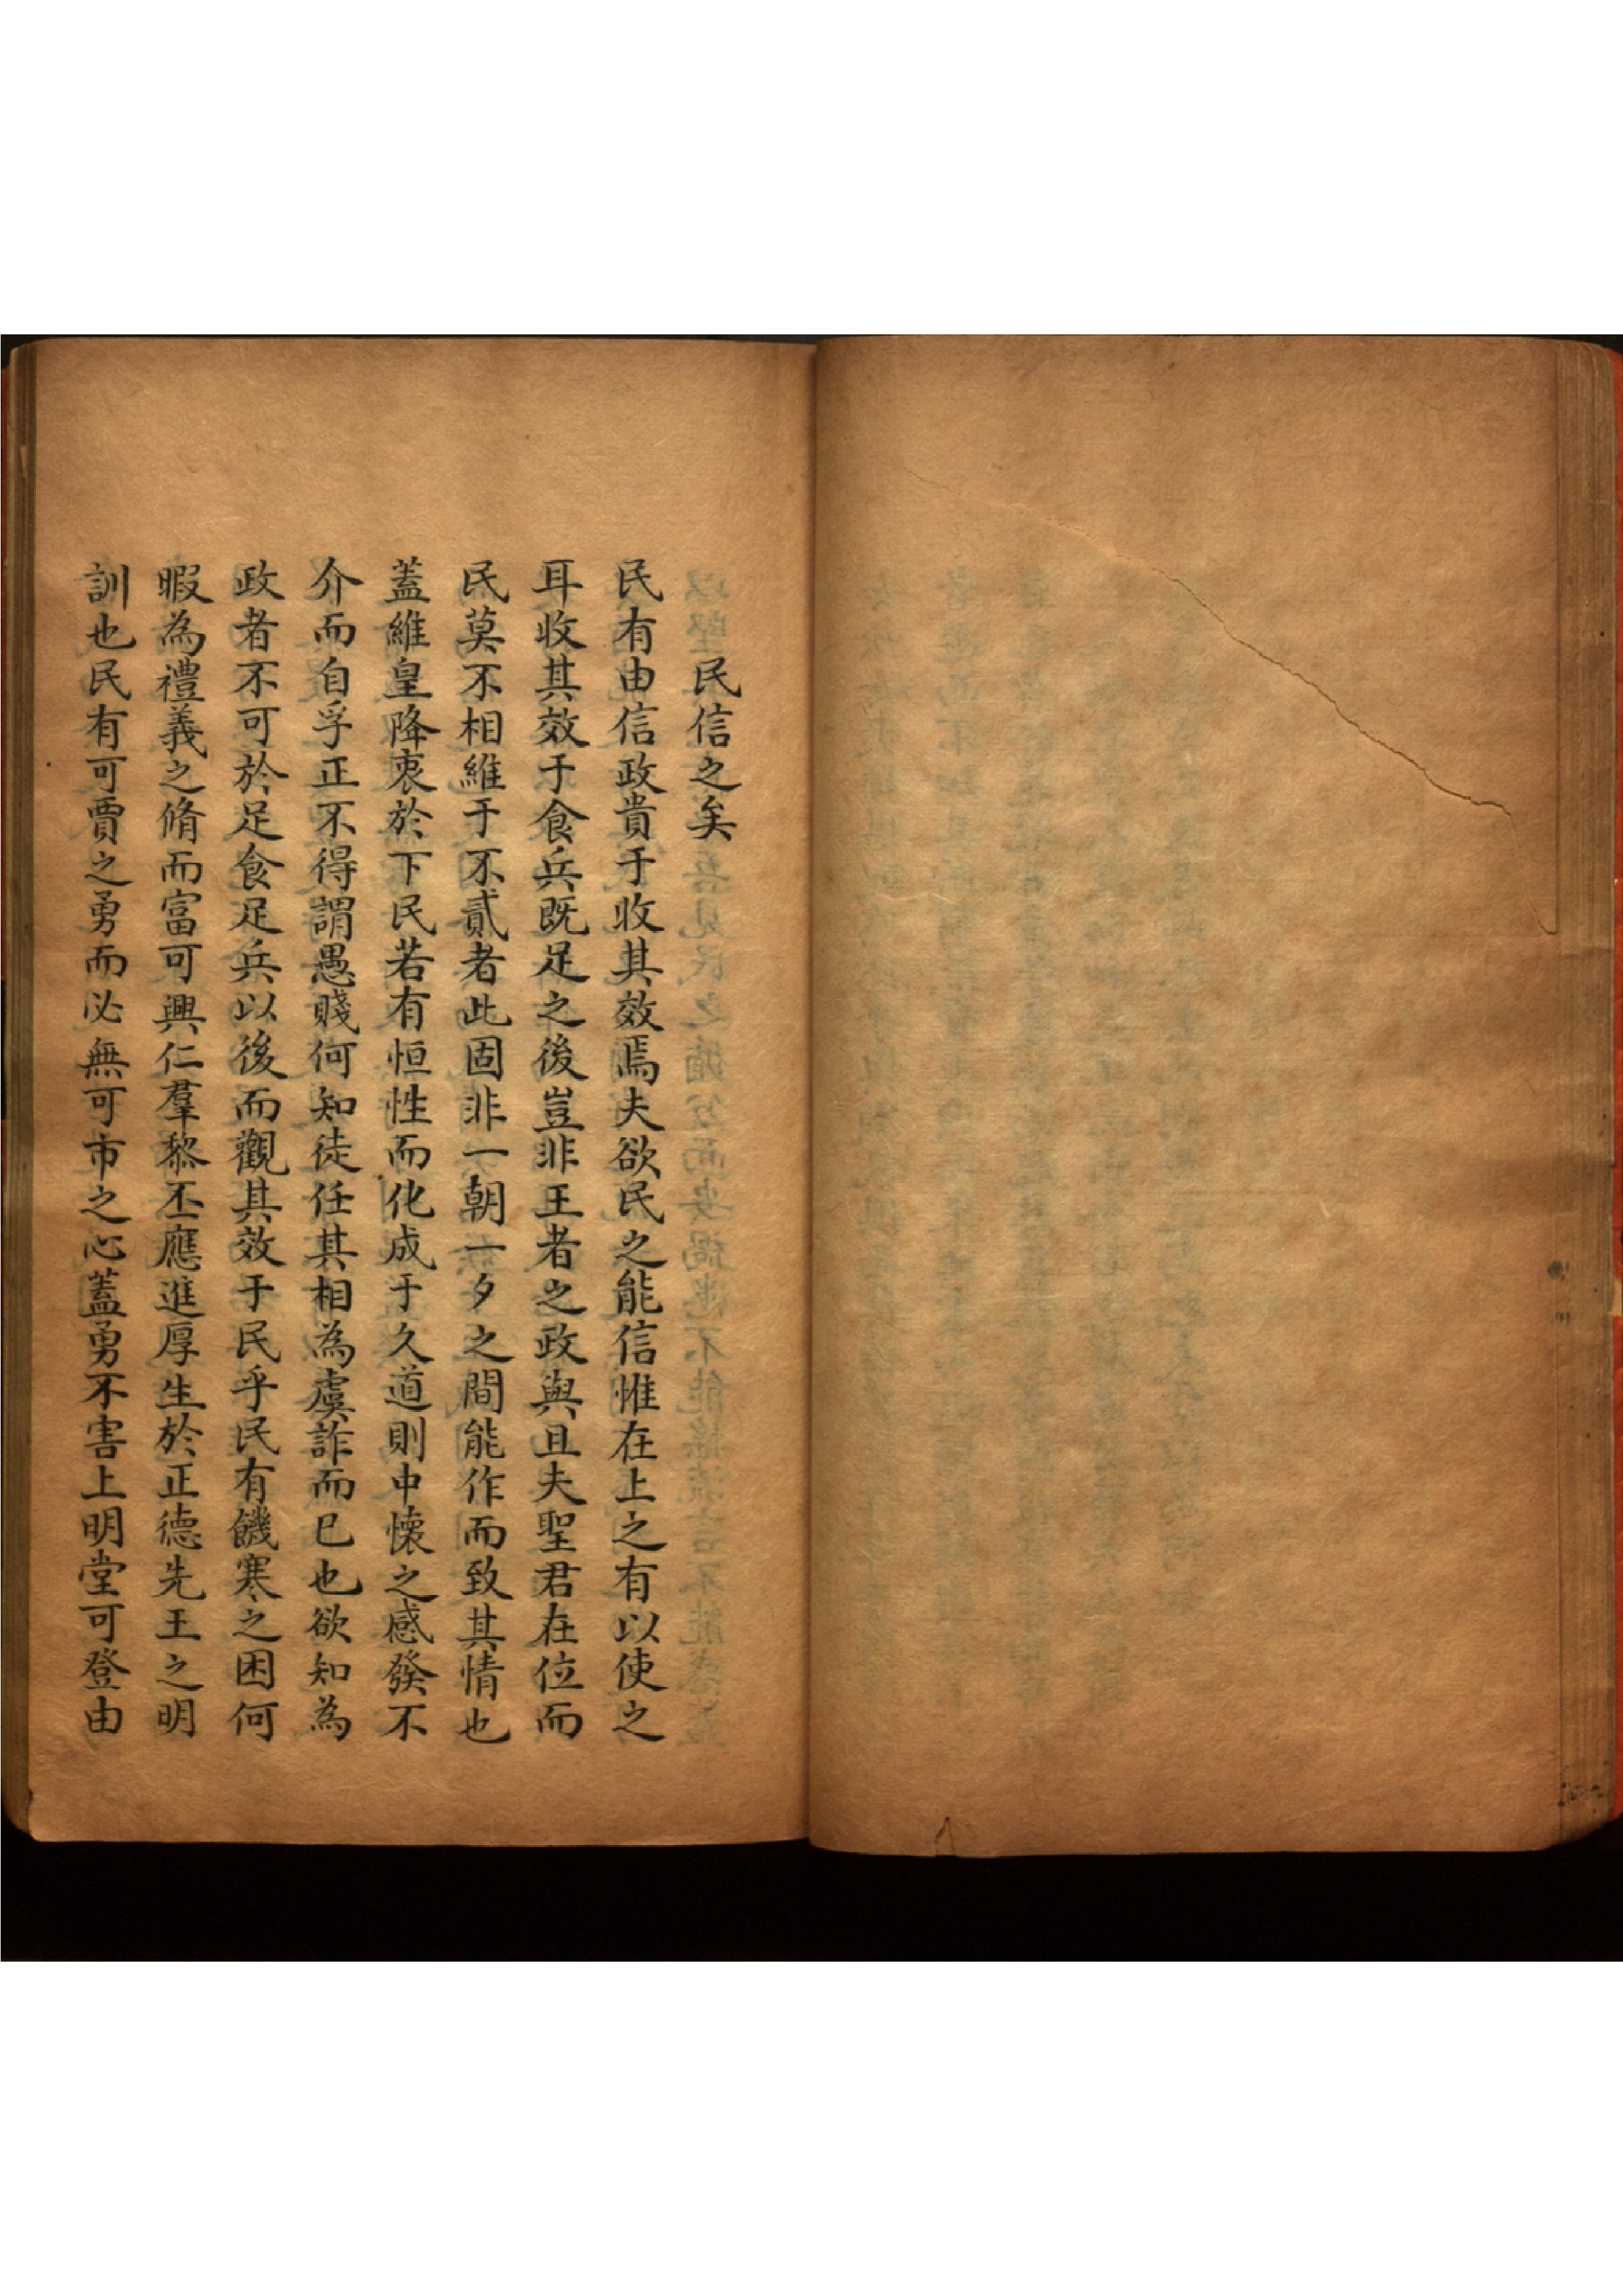 民信之矣
民有由信政貴于收其效焉夫欲民之能信惟在上之有以使之
耳收其效于食兵既足之後豈非王者之政與且夫聖君在位而
民莫不相維于不貳者此固非一朝一夕之間能作而致其情也
蓋維皇降衷於下民若有恒性而化成于久道則中懷之感發不
介而自孚正不得謂愚賤何知徒任其相為虞詐而已也欲知為
政者不可於足食足兵以後而觀其效于民乎民有饑寒之困何
暇為禮義之脩而富可興仁羣黎丕應進厚生於正德先王之明
訓也民有可賈之勇而必無可市之心蓋勇不害上明堂可登由